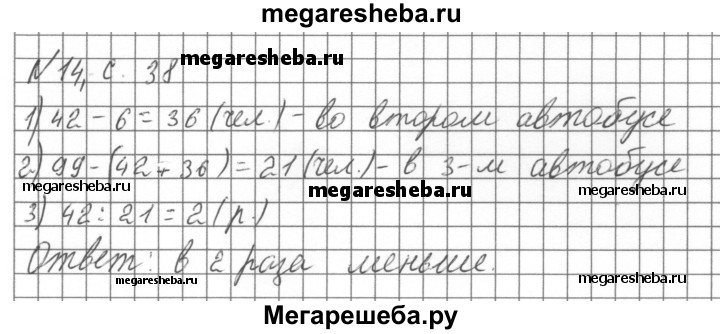 megaresheba.ru
megaresheba.ru
N 14, с. 38
1) 42 - 6 = 36 (чел.) - во втором автобусе
2) 99 - (42 + 36) = 21 (чел.) - в 3-м автобусе
megaresheba.ru megaresheba.ru megaresheba.ru
3) 42 : 21 = 2 (р.)
Ответ: в 2 раза меньше.
megaresheba.ru megaresheba.ru
Мегарешеба.ру